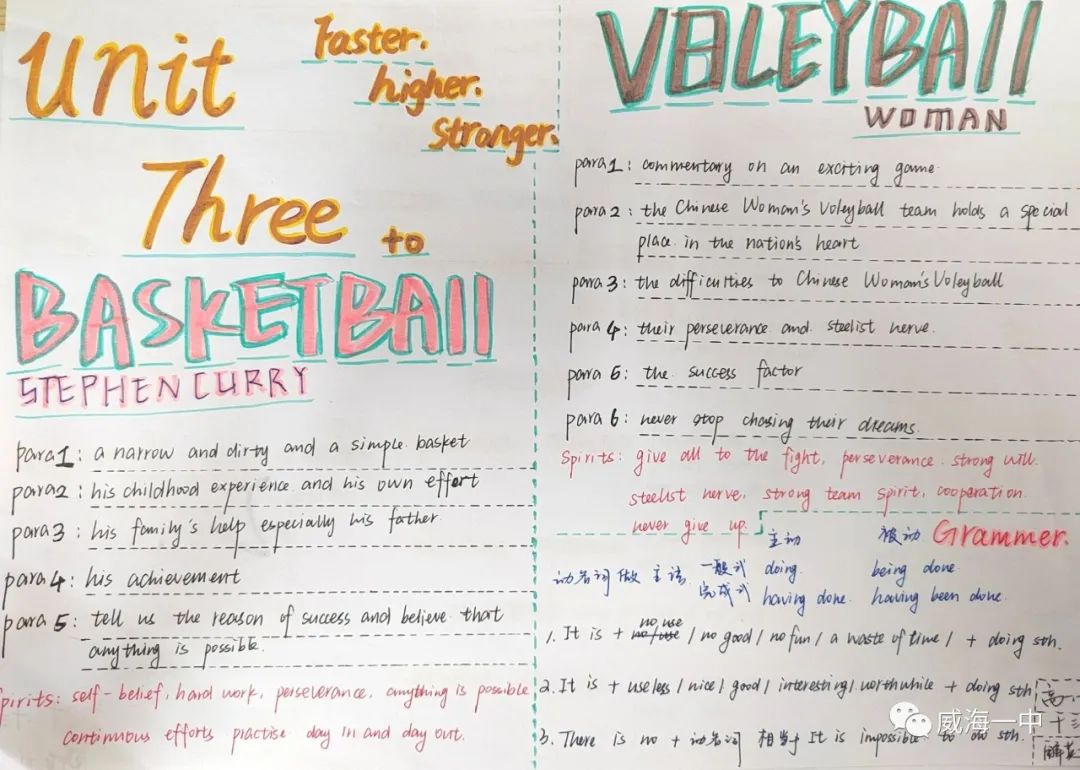 Unit
Three
Faster.
higher.
stranger.
to
BASKETBAll
STEPHEN CURRY
para1: a narrow and dirty and a simple basket
para2: his childhood experience and his own effort
para3: his family's help especially his father.
para4: his achievement
para5: tell us the reason of success and believe that
anything is possible.
pirits: self-belief, hard work, perseverance, anything is possible
continuous efforts practise day in and day out.
VOLEYBAll
WOMAN
para1: commentary on an exciting game
para2: the Chinese Woman's Voleyball team holds a special
place in the nation's heart
para3: the difficulties to Chinese Woman's Voleyball
para4: their perseverance and steelist nerve.
para5: the success factor
para6: never stop chasing their dreams.
Spirits: give all to the fight, perseverance. strong will.
steelist nerve, strong team spirit, cooperation.
never give up.
Grammer.
主动 被动
动名词做主语 一般式 doing. being done
完成式 having done. having been done.
1. It is + no use / no good / no fun / a waste of time / + doing sth.
2. It is + useless / nice / good / interesting / worthwhile + doing sth
3. There is no + 动名词 相当于 It is impossible to do sth.
高一
十三
威海一中